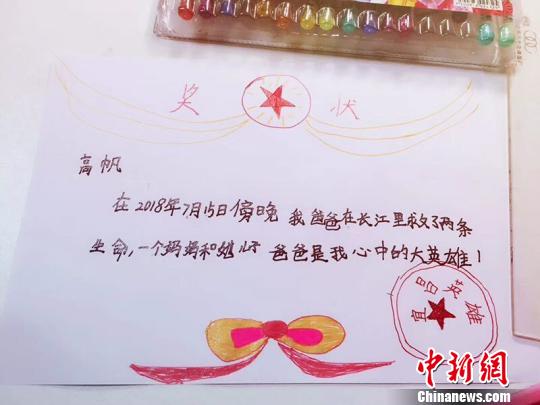 奖状
高帆
在2018年7月15日傍晚 我爸爸在长江里救了两条
生命,一个妈妈和她 爸爸是我心中的大英雄!
宜昌英雄
中新网
Chinanews.com